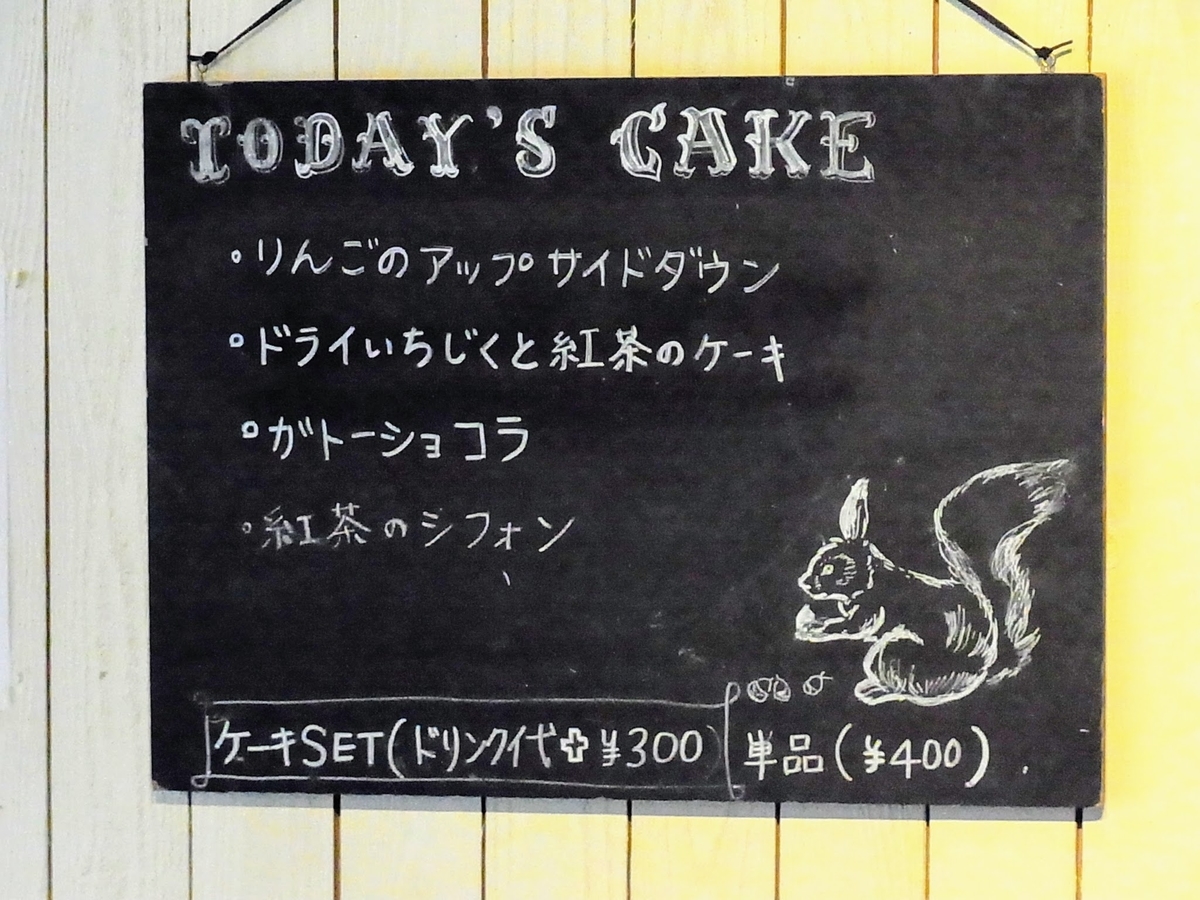 TODAY'S CAKE
・りんごのアップサイドダウン
・ドライいちじくと紅茶のケーキ
・ガトーショコラ
・紅茶のシフォン
ケーキSET(ドリンク代✚¥300) 単品(¥400)